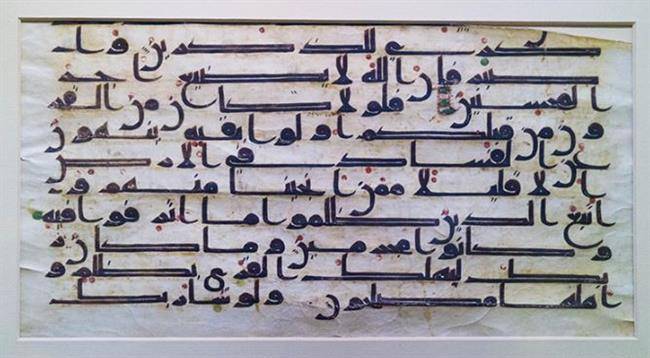 ذكرى للذكرين وا
صبر فان الله لا يضيع اجر
المحسنين فلولا كان من القر
ون من قبلكم اولوا بقية ينهون
عن الفساد في الارض
الا قليلا ممن انجينا منهم و
اتبع الذين ظلموا ما اترفوا فيه
و كانوا مجرمين وما كان ر
بك ليهلك القرى بظلم و
اهلها مصلحون ولو شا ربك